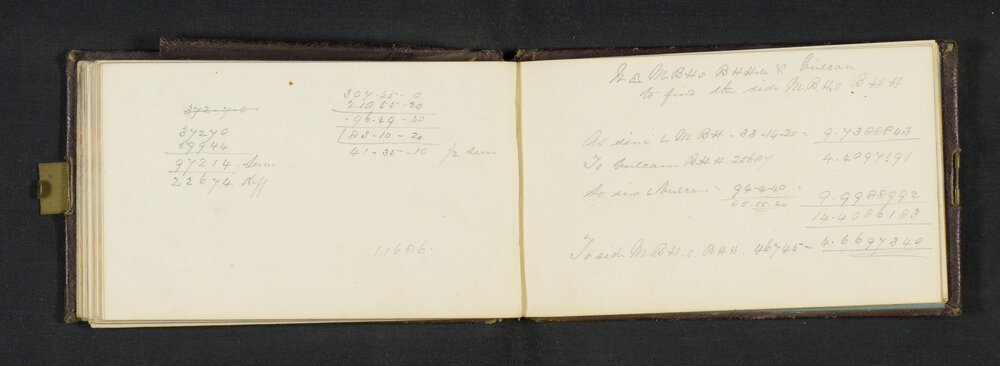 372-70
37270
59944
97214 Sum
22674 diff
30 45-0
21055-20
96-49-40
83-10-20
41-35-10 1/2 sum
1.626.
In Δ M B Hs B H Hill & Vulcan
to find the side M B Hs B H H
As sine ∠ M B H = 33-14-20 = 9.7388843
To Vulcan - B H H 25687 4.4097191
So sine ∠ Vulcan = 94-4-40 =
85.55.20 9.9988992
14.4086183
To side M B H s B H H .. 46745 = 4.6697340